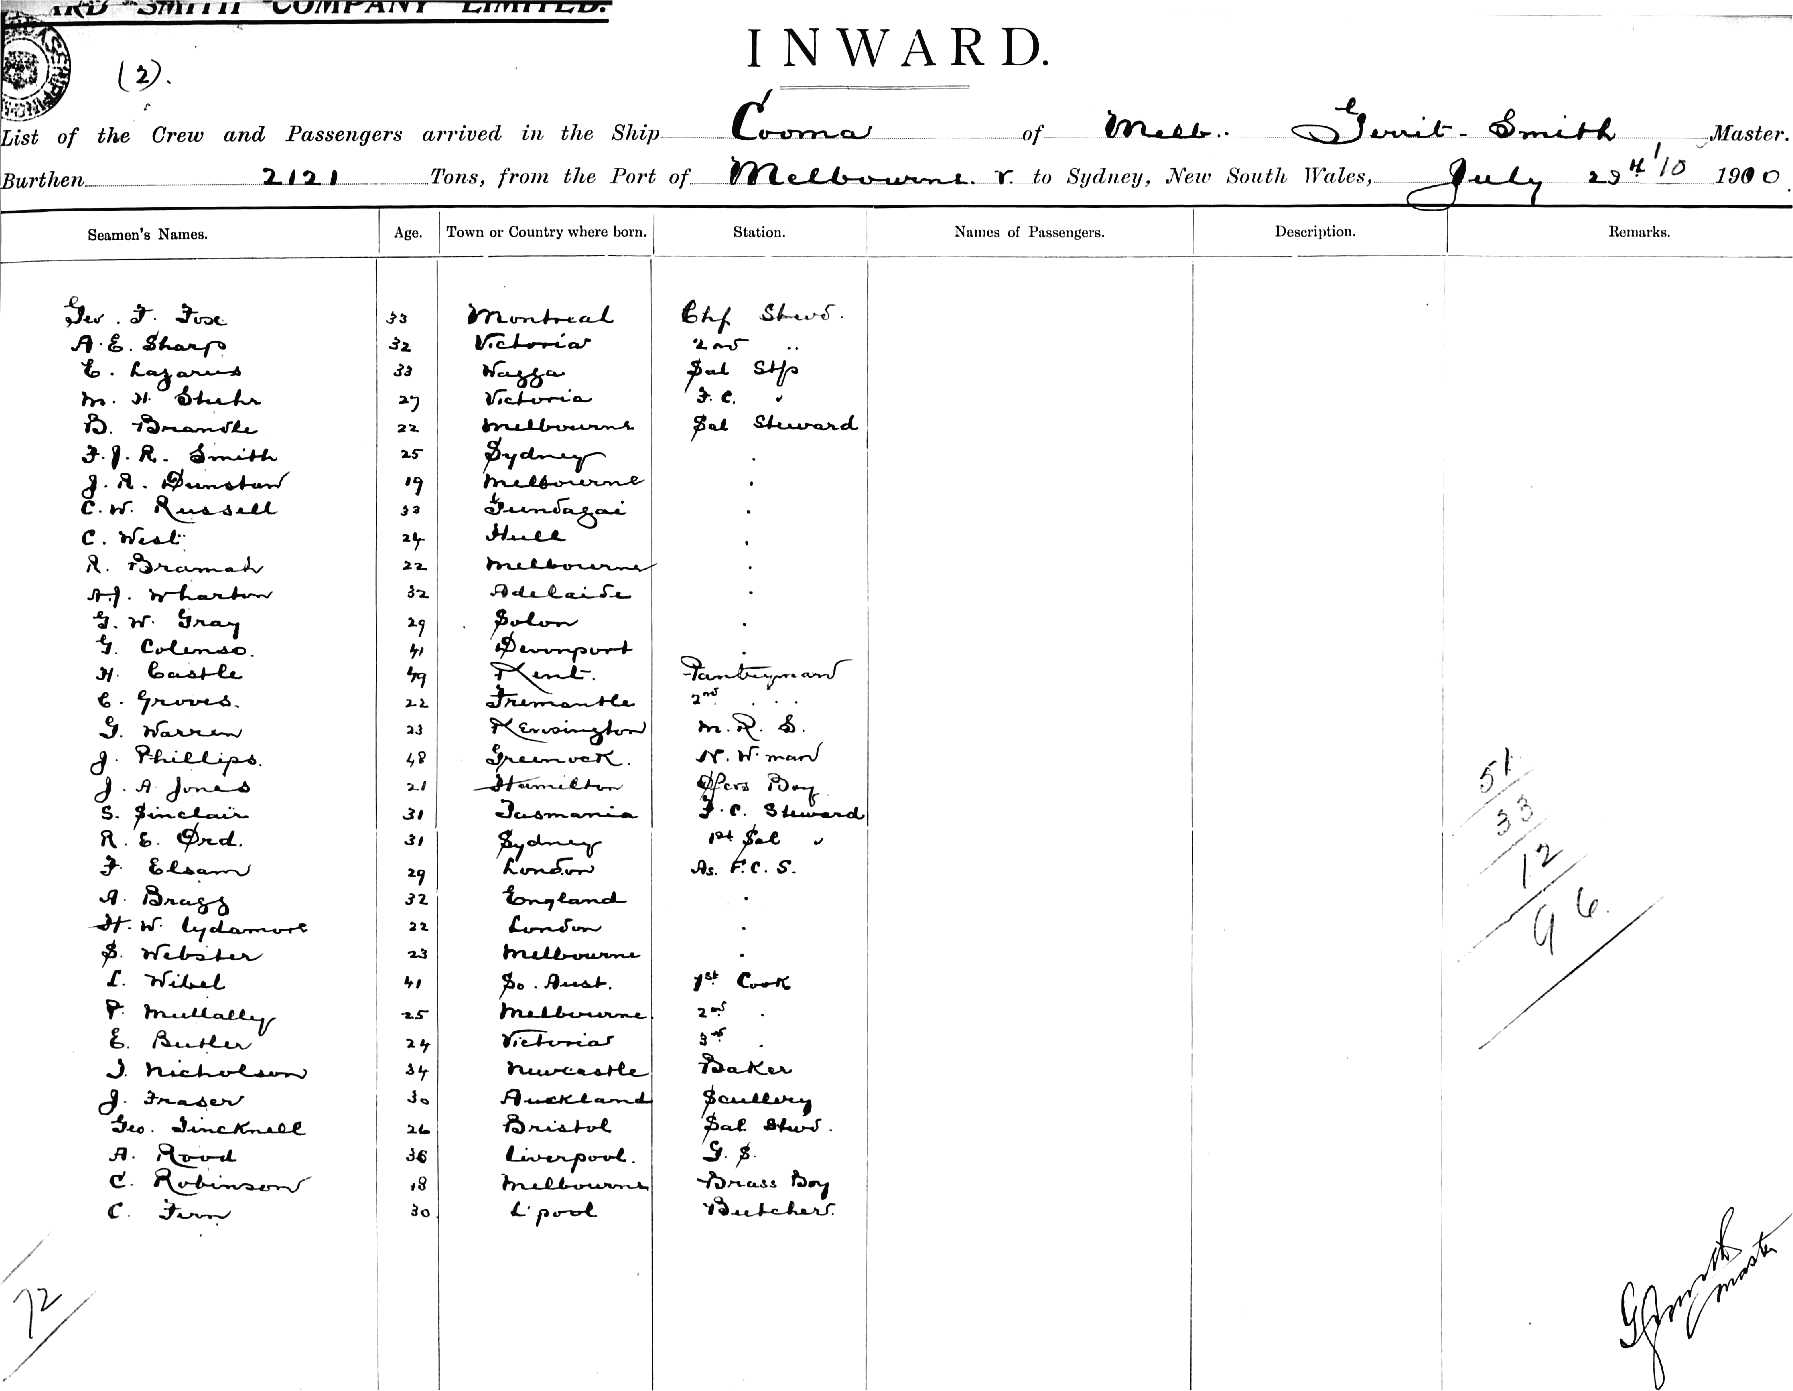 ARD SMITH COMPANY LIMITED.
INWARD.
(2).
List of the Crew and Passengers arrived in the Ship Cooma of Melb. Gerrit Smith Master.
Burthen 2121 Tons, from the Port of Melbourne to Sydney, New South Wales, July 29 1910
Seamen's Names. Age. Town or Country where born. Station. Names of Passengers. Description. Remarks.
Geo. F. Fox 33 Montreal Chf Stewd.
A. E. Sharp 32 Victoria 2nd "
E. Lazarus 33 Wagga Sal Stp
M. H. Stuhr 27 Victoria F. C. "
B. Brandle 22 Melbourne Sal Steward
F. J. R. Smith 25 Sydney .
J. R. Dunstan 19 Melbourne .
C. W. Russell 33 Gundagai .
C. West 24 Hull .
R. Bramah 22 Melbourne .
A. J. Wharton 32 Adelaide .
G. W. Gray 29 Solon .
G. Colenso. 41 Devonport .
H. Castle 49 Kent. Pantryman
C. Groves. 22 Fremantle 2nd . . .
G. Warren 23 Kensington M. R. S.
J. Phillips. 48 Greenock. N. W man
J. A. Jones 21 Hamilton Ofcrs Boy
S. Sinclair 31 Tasmania F. C. Steward
R. E. Ord. 31 Sydney 1st Sal "
F. Elsam 29 London As. F. C. S.
A. Bragg 32 England .
H. W. Lydamore 22 London .
S. Webster 23 Melbourne .
L. Wibel 41 So. Aust. 1st Cook
P. Mullally 25 Melbourne 2nd .
E. Butler 24 Victoria 3rd .
J. Nicholson 34 Newcastle Baker
J. Fraser 30 Auckland Scullery
Geo. Tincknell 26 Bristol Sal Stwd.
A. Rood 36 Liverpool. G. S.
C. Robinson 18 Melbourne Brass Boy
C. Fern 30 L'pool Butcher.
51
33
12
96.
72
G Smith
master